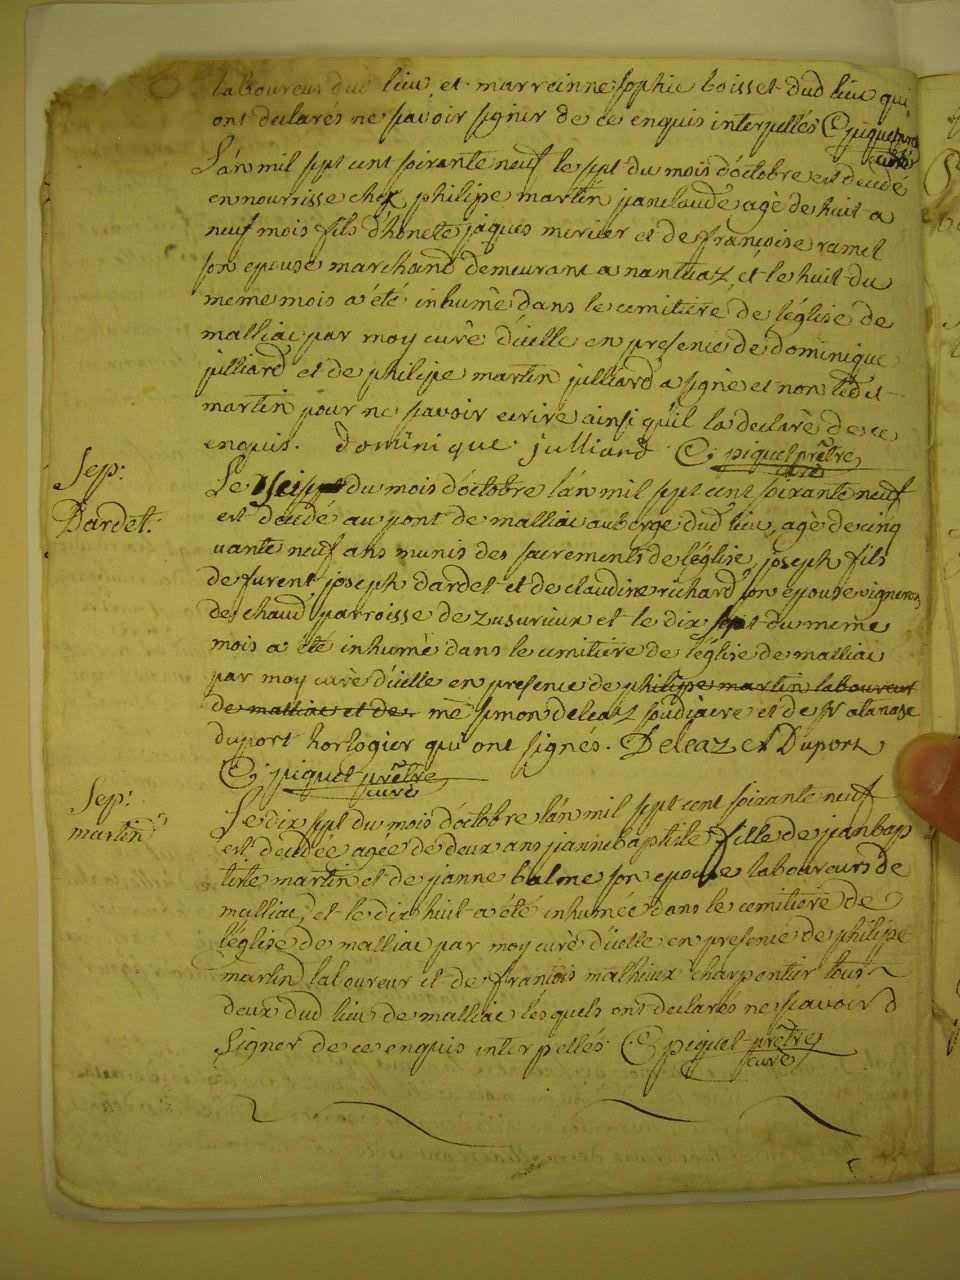 laboureur dud lieu et marreinne sophie boisset dud lieu qui
ont declarés ne sçavoir signer de ce enquis interpellés C piquet prêtre
curé
L'an mil sept cent soixante neuf le sept du mois d'octobre est decedé
en nourrisse chez philipe martin jan claude agè de huit a
neuf mois fils d'honete jaques mercier et de françoise ramel
son epouse marchand demeurant a nantuaz, et le huit du
meme mois a été inhumè dans le cemitiere de l'église de
malliac par moy curè d'icelle en presence de dominique
julliard et de philipe martin julliard a signé et non led
martin pour ne sçavoir ecrire ainsi qu'il la declarè de ce
enquis. dominique julliard. C: piquet prêtre
curé
Sep:
Dardet.
Le du mois d'octobre l'an mil sept cent soixante neuf
est decedé au pont de malliac auberge dud lieu, agè de cinq
uante neuf ans munis des sacrements de l'église joseph fils
de furent joseph dardet et de claudine richard son epouse vignerons
de chaud parroisse de zusurieux et le dix sept du meme
mois a été inhumè dans le cemitiere de l'église de malliac
par moy curè d'icelle en presence de philipe martin laboureur
de malliac et de me simon deleaz soudiacre et de sr atanase
duport horlogier qui ont signés. Deleaz ct Duport
C: piquet prêtre
curé
Sep:
martin
Le dix sept du mois d'octobre l'an mil sept cent soixante neuf
est decedée agee de deux ans janne baptiste fille de jean bap
tiste martin et de janne balme son epouse laboureurs de
malliac, et le dix huit a été inhumée dans le cemitiere de
l'église de malliac par moy curè d'icelle en presence de philipe
martin laboureur et de françois mathieux charpentier tous
deux dud lieu de malliac lesquels ont declarés ne sçavoir
signer de ce enquis interpellés. C piquet prêtre
curé